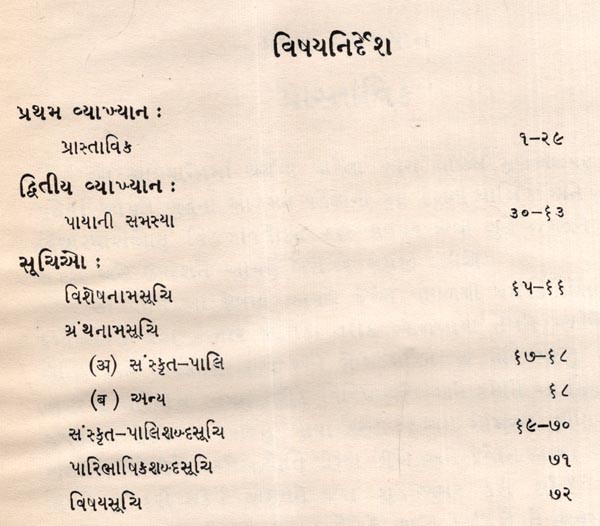 વિષયનિર્દેશ
પ્રથમ વ્યાખ્યાન :
પ્રાસ્તાવિક ૧-૨૯
દ્વિતીય વ્યાખ્યાન :
પાયાની સમસ્યા ૩૦-૬૩
સૂચિઓ :
વિશેષનામસૂચિ ૬૫-૬૬
ગ્રંથનામસૂચિ
(અ) સંસ્કૃત-પાલિ ૬૭-૬૮
(બ) અન્ય ૬૮
સંસ્કૃત-પાલિશબ્દસૂચિ ૬૯-૭૦
પારિભાષિકશબ્દસૂચિ ૭૧
વિષયસૂચિ ૭૨